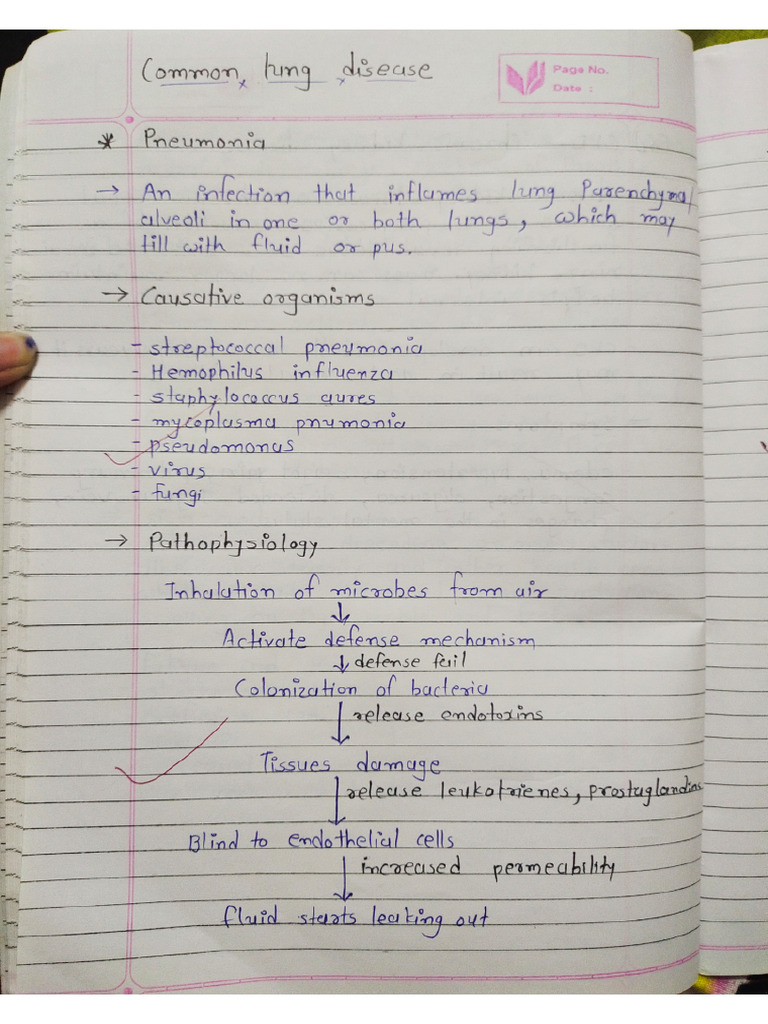 Common lung disease
Page No.
Date :
* Pneumonia
→ An infection that inflames lung Parenchyma/
alveoli in one or both lungs, which may
fill with fluid or pus.
→ Causative organisms
- streptococcal pneumonia
- Hemophilus influenza
- staphylococcus aures
- mycoplasma pnumonia
- pseudomonas
- virus
- fungi
→ Pathophysiology
Inhalation of microbes from air
↓
Activate defense mechanism
↓ defense fail
Colonization of bacteria
↓ release endotoxins
Tissues damage
↓ release leukotrienes, prostuglandins
Blind to endothelial cells
↓ increased permeability
fluid starts leaking out